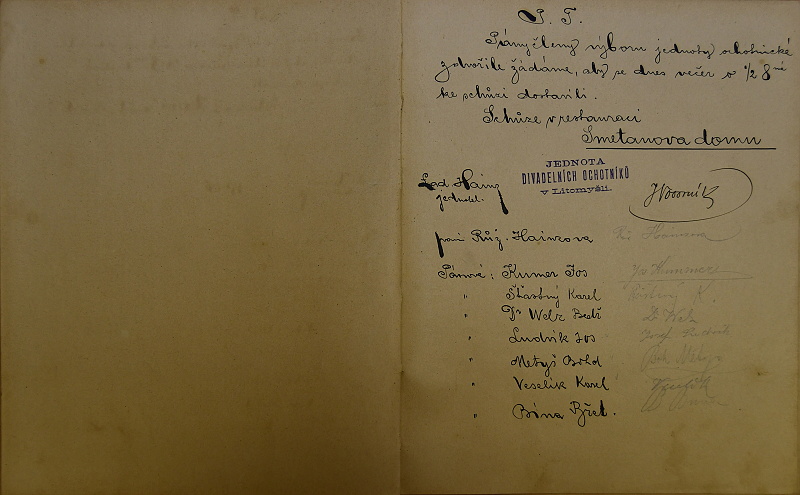 P. T.
Pány členy výboru jednoty ochotnické
zdvořile žádáme, aby se dnes večer o ½ 8 mé
ke schůzi dostavili.
Schůze v restauraci
Smetanova domu
JEDNOTA
DIVADELNÍCH OCHOTNÍKŮ
v Litomyšli.
Lad. Hainz
jednatel.
paní Růž. Hainzova Hainzova
Pánové: Kumer Jos
" Šťastný Karel K.
" Dr Welz Bedř
" Ludvík Jos Josef
" Metyš Bohd
" Veselík Karel
" Bóna Břet.